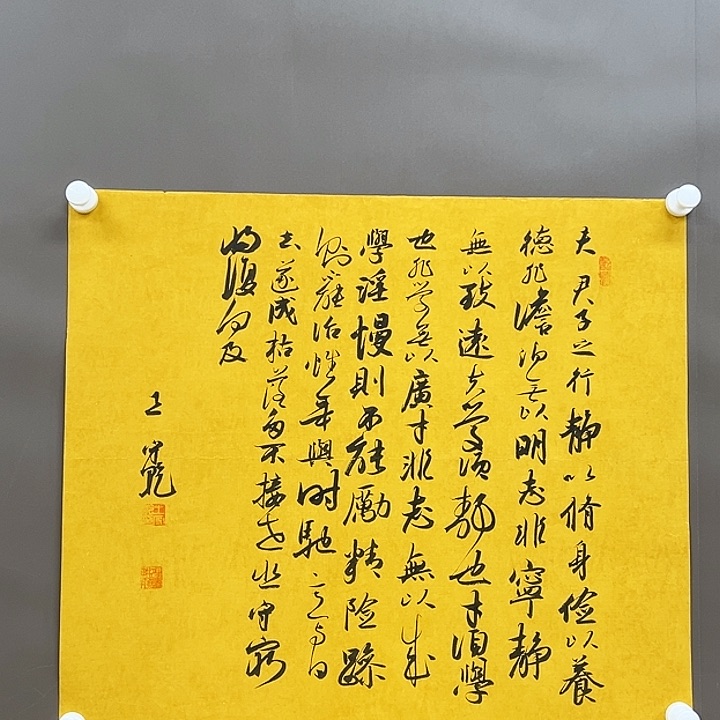 夫君子之行静以脩身俭以養
德非澹泊无以明志非寧静
無以致遠夫學須静也才須學
也非学無以廣才非志無以成
學淫慢則不能勵精险躁
则治性年與时馳意与日
去遂成枯落多不接世悲守窮
将復何及
王守乾